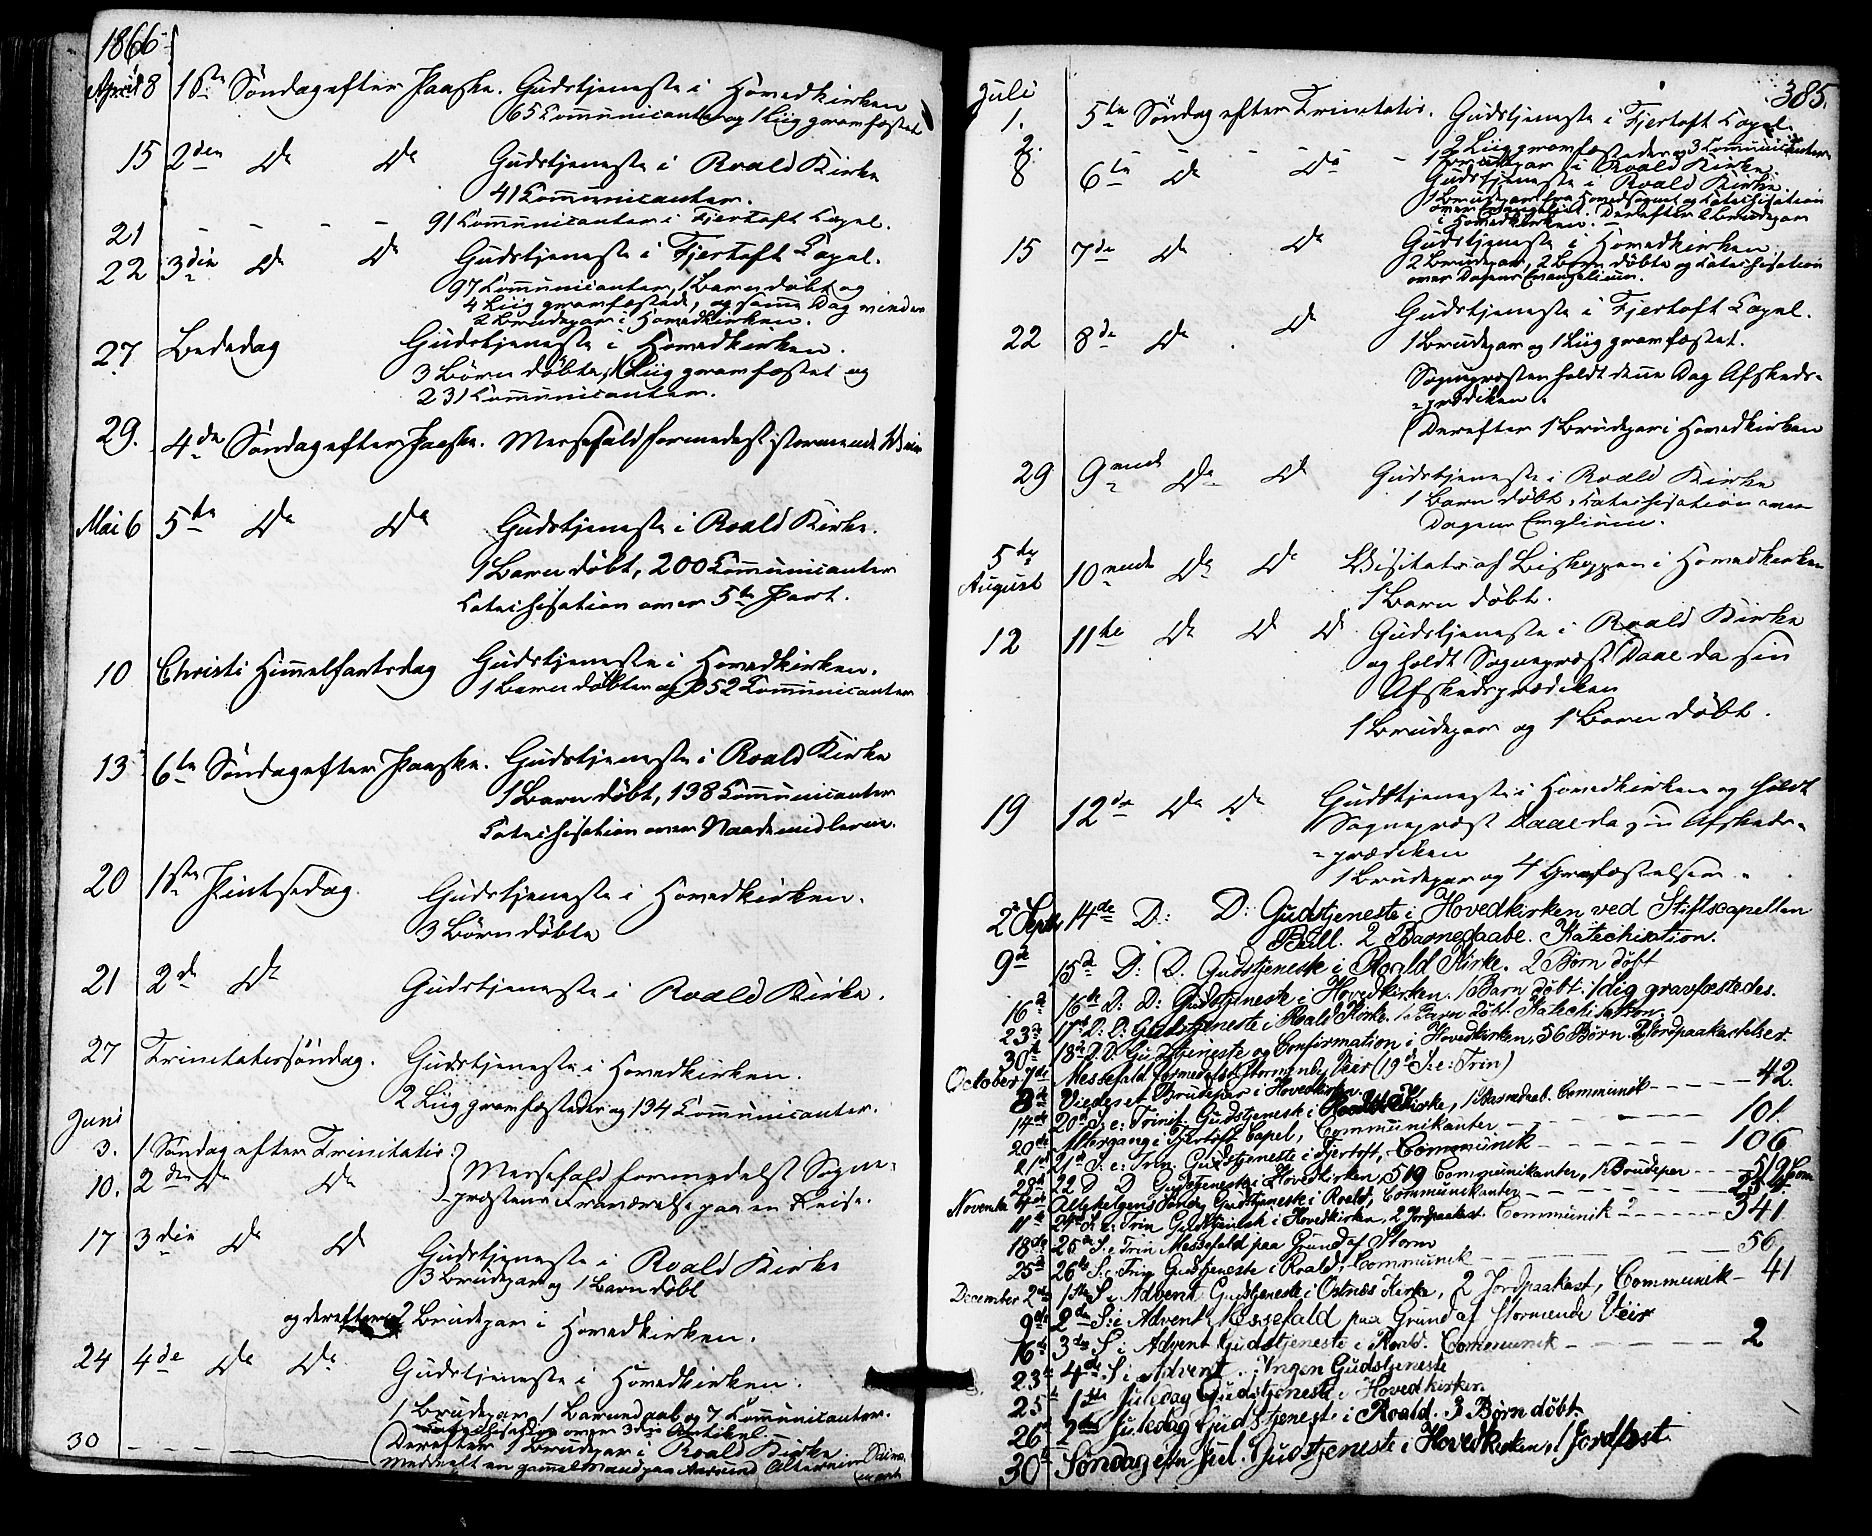 1866
April 8 1ste Søndag efter Paaske. Gudstjeneste i Hovedkirken
65 Communicanter og 1 Liig gravfæstet
15 2den Do Do Gudstjeneste i Roald Kirke
41 Communicanter.
21 - - - - 91 Communicanter i Fjertoft Capel.
22 3die Do Do Gudstjeneste i Fjertoft Capel.
97 Communicanter, 1 Barn døbt og
4 Liig gravfæstede, og samme Dag viedes
2 Brudepar i Hovedkirken.
27 Bededag Gudstjeneste i Hovedkirken.
3 Børn døbte, 1 Liig gravfæstet og
231 Communicanter.
29. 4de Søndag efter Paaske. Messefald formedelst stormende Veir
Mai 6 5te Do Do Gudstjeneste i Roald Kirke.
1 Barn døbt, 200 Communicanter
Catechisation over 5te Part.
10 Christi Himmelfartsdag Gudstjeneste i Hovedkirken.
1 Barn døbt og 252 Communicanter
13 6te Søndag efter Paaske. Gudstjeneste i Roald Kirke
1 Barn døbt, 138 Communicanter
Catechisation over Naademidlerne.
20 1ste Pintsedag. Gudstjeneste i Hovedkirken.
3 Børn døbte
21 2d Do Gudstjeneste i Roald Kirke.
27 Trinitatissøndag. Gudstjeneste i Hovedkirken.
2 Liig gravfæstede og 134 Communicanter.
Juni
3. 1 Søndag efter Trinitatis.
10. 2den Do Do Messefald formedelst Sogne-
-præstens Fraværelse paa en Reise.
17 3die Do Do Gudstjeneste i Roald Kirke
3 Brudepar og 1 Barn døbt
og derefter 2 Brudepar i Hovedkirken.
24 4de Do Do Gudstjeneste i Hovedkirken.
1 Brudepar, 1 Barnedaab og 7 Communicanter.
Catechisation over 3die Artikel.
30 - - - - Derefter 1 Brudepar i Roald Kirke.
meddelt en gammel Mand paa
385.
Juli
1. 5te Søndag efter Trinitatis. Gudstjeneste i Fjertoft Capel.
2 Liig gravfæstede og 3 Communicanter
2. - - - - 1 Brudepar i Roald Kirke.
8 6te Do Do Gudstjeneste i Roald Kirke.
1 Brudepar fra Hovedsognet og Catechisation
over Evangeliet. Derefter 2 Brudepar
i Hovedkirken.
15 7de Do Do Gudstjeneste i Hovedkirken
2 Brudepar, 2 Børn døbte og Catechisation
over Dagens Evangelium.
22 8de Do Do Gudstjeneste i Fjertoft Capel.
1 Brudepar og 1 Liig gravfæstet.
Sognepræsten holdt denne Dag Afskeds-
-prædiken.
Derefter 1 Brudepar i Hovedkirken
29 9nde Do Do Gudstjeneste i Roald Kirke
1 Barn døbt, Catechisation over
Dagens Evglium.
5te
August 10nde Do Do Visitats af Biskoppen i Hovedkirken
1 Barn døbt.
12 11te Do Do Do Gudstjeneste i Roald Kirke
og holdt Sognepræst Daae da sin
Afskedsprædiken
1 Brudepar og 1 Barn døbt.
19 12te Do Do Gudstjeneste i Hovedkirken og holdt
Sognepræst Daae da sin Afskeds-
-prædiken
1 Brudepar og 4 Gravfæstelser.
2 Septr 14de D: D: Gudstjeneste i Hovedkirken ved Stiftscapellan
Bull. 2 Barnedaabe. Katechisation.
9de 15de D: D. Gudstjeneste i Roald Kirke. 2 Børn døbt
16de 16de D: D: Gudstjeneste i Hovedkirken. 1 Barn døbt. 1 Liig gravfæstedes.
23de 17de D: D: Gudstjeneste i Roald Kirke. 1 Barn døbt. Katechisation.
30te 18de D: D. Gudstjeneste og Confirmation i Hovedkirken, 56 Børn. 2 Jordpaakastelser.
October 7de Messefald formedelst stormende Veir (19de S: e: Trin)
8de Viedes et Brudepar i Hovedkirken
14de 20de S: e: Trinit. Gudstjeneste i Roald Kirke, 1 Barnedaab. Communik - - - - 42.
20de Altergang i Fjertoft Capel, Communikanter - - - - 101.
21de 21de S: e: Trin. Gudstjeneste i Fjertoft, Communik - - - - 106
28de 22 D D Gudstjeneste i Hovedkirken, 519 Communikanter, 1 Brudepar - - - 519 Com
Novembr 4de Allehelgens Søndag Gudstjeneste i Roald, Communikanter - - - -
11te 24de S: e: Trin Gudstjeneste i Hovedkirken, 2 Jordpaakast. Communik - - - - 341
18de 25de S: e Trin Messefald paa Grund af Storm
25de 26te S: e. Trin Gudstjeneste i Roald, Communik - - - - 56
December 2den 1ste S. i Advent. Gudstjeneste i Ostnes Kirke, 2 Jordpaakast, Communik - 41
9de 2den S: i Advent Messefald paa Grund af stormende Veir
16de 3die S i Advent Gudstjeneste i Roald. Communik - - - - 2
23de 4de S i Advent. Ingen Gudstjeneste
25de 1ste Juledag Gudstjeneste i Hovedkirken.
26de 2den Juledag Gudstjeneste i Roald. 3 Børn døbt.
30te Søndag efter Jul. Gudstjeneste i Hovedkirken, 1 Jordfæst